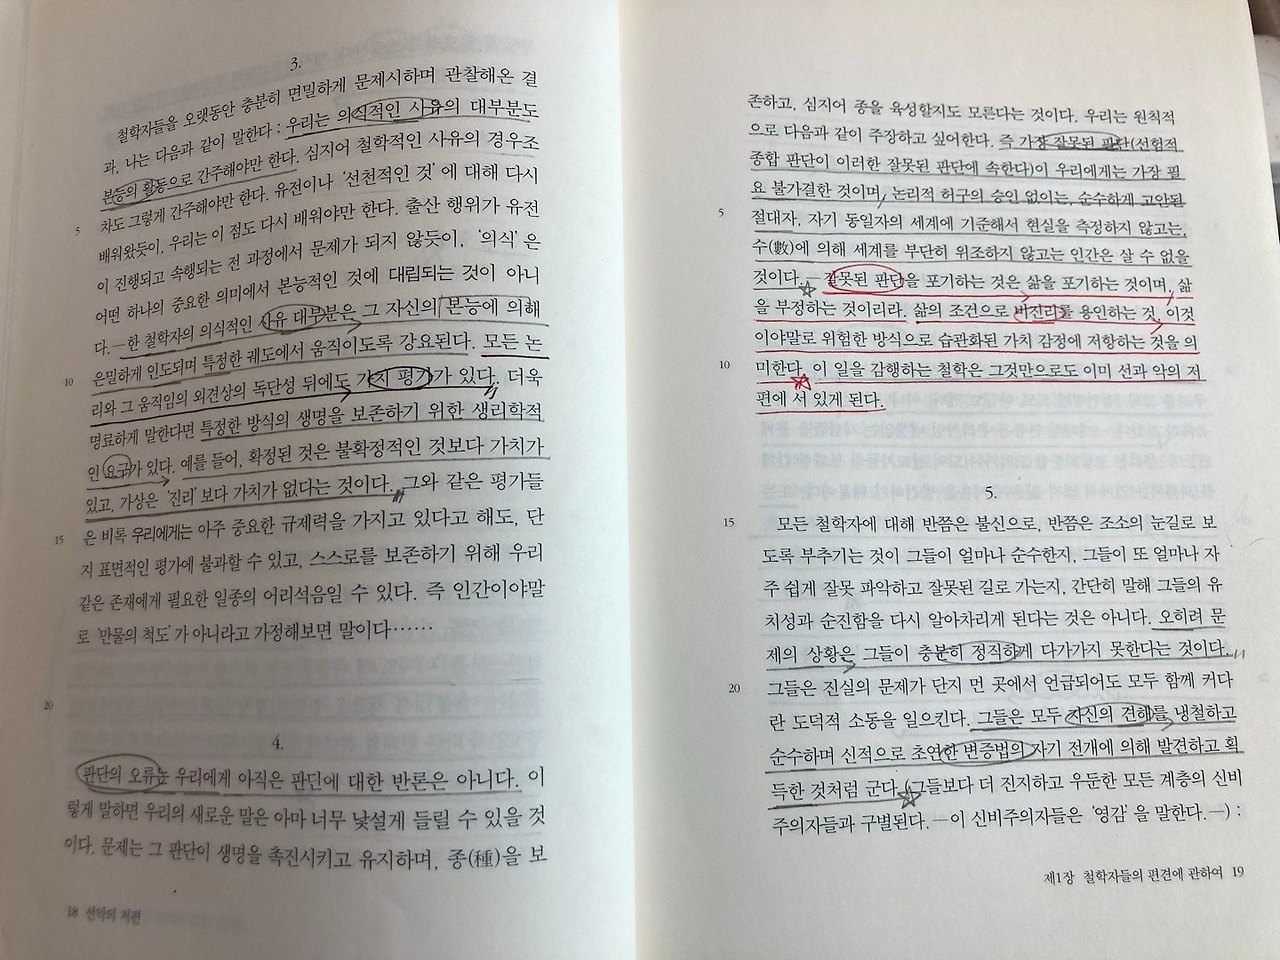 3.
철학자들을 오랫동안 충분히 면밀하게 문제시하며 관찰해온 결
과, 나는 다음과 같이 말한다 : 우리는 의식적인 사유의 대부분도
본능의 활동으로 간주해야만 한다. 심지어 철학적인 사유의 경우조
차도 그렇게 간주해야만 한다. 유전이나 '선천적인 것'에 대해 다시
5
배워왔듯이, 우리는 이 점도 다시 배워야만 한다. 출산 행위가 유전
이 진행되고 속행되는 전 과정에서 문제가 되지 않듯이, '의식'은
어떤 하나의 중요한 의미에서 본능적인 것에 대립되는 것이 아니
다.—한 철학자의 의식적인 사유 대부분은 그 자신의 본능에 의해
은밀하게 인도되며 특정한 궤도에서 움직이도록 강요된다. 모든 논
10
리와 그 움직임의 외견상의 독단성 뒤에도 가치 평가가 있다. 더욱
명료하게 말한다면 특정한 방식의 생명을 보존하기 위한 생리학적
인 요구가 있다. 예를 들어, 확정된 것은 불확정적인 것보다 가치가
있고, 가상은 '진리'보다 가치가 없다는 것이다. 그와 같은 평가들
은 비록 우리에게는 아주 중요한 규제력을 가지고 있다고 해도, 단
15
지 표면적인 평가에 불과할 수 있고, 스스로를 보존하기 위해 우리
같은 존재에게 필요한 일종의 어리석음일 수 있다. 즉 인간이야말
로 '만물의 척도'가 아니라고 가정해보면 말이다……
20
4.
판단의 오류는 우리에게 아직은 판단에 대한 반론은 아니다. 이
렇게 말하면 우리의 새로운 말은 아마 너무 낯설게 들릴 수 있을 것
이다. 문제는 그 판단이 생명을 촉진시키고 유지하며, 종(種)을 보
18 선악의 저편
존하고, 심지어 종을 육성할지도 모른다는 것이다. 우리는 원칙적
으로 다음과 같이 주장하고 싶어한다. 즉 가장 잘못된 판단(선험적
종합 판단이 이러한 잘못된 판단에 속한다)이 우리에게는 가장 필
요 불가결한 것이며, 논리적 허구의 승인 없이는, 순수하게 고안된
5
절대자, 자기 동일자의 세계에 기준해서 현실을 측정하지 않고는,
수(數)에 의해 세계를 부단히 위조하지 않고는 인간은 살 수 없을
것이다.—잘못된 판단을 포기하는 것은 삶을 포기하는 것이며, 삶
을 부정하는 것이리라. 삶의 조건으로 비진리를 용인하는 것, 이것
이야말로 위험한 방식으로 습관화된 가치 감정에 저항하는 것을 의
10
미한다. 이 일을 감행하는 철학은 그것만으로도 이미 선과 악의 저
편에 서 있게 된다.
5.
15
모든 철학자에 대해 반쯤은 불신으로, 반쯤은 조소의 눈길로 보
도록 부추기는 것이 그들이 얼마나 순수한지, 그들이 또 얼마나 자
주 쉽게 잘못 파악하고 잘못된 길로 가는지, 간단히 말해 그들의 유
치성과 순진함을 다시 알아차리게 된다는 것은 아니다. 오히려 문
제의 상황은 그들이 충분히 정직하게 다가가지 못한다는 것이다.
20
그들은 진실의 문제가 단지 먼 곳에서 언급되어도 모두 함께 커다
란 도덕적 소동을 일으킨다. 그들은 모두 자신의 견해를 냉철하고
순수하며 신적으로 초연한 변증법의 자기 전개에 의해 발견하고 획
득한 것처럼 군다. (그들보다 더 진지하고 우둔한 모든 계층의 신비
주의자들과 구별된다.—이 신비주의자들은 '영감'을 말한다.—) :
제1장 철학자들의 편견에 관하여 19